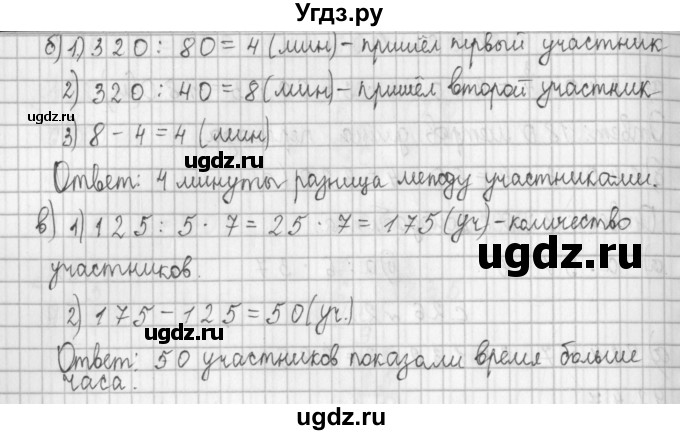 Угдз.ру
б) 1) 320 : 80 = 4 (мин) - пришёл первый участник
2) 320 : 40 = 8 (мин) - пришёл второй участник
3) 8 - 4 = 4 (мин)
ugdz.ru
ugdz.ru
Ответ: 4 минуты разница между участниками.
в) 1) 125 : 5 · 7 = 25 · 7 = 175 (уч) - количество
ugdz.ru
участников.
ugdz.ru
2) 175 - 125 = 50 (уч.)
ugdz.ru
Ответ: 50 участников показали время больше
часа.
ugdz.ru